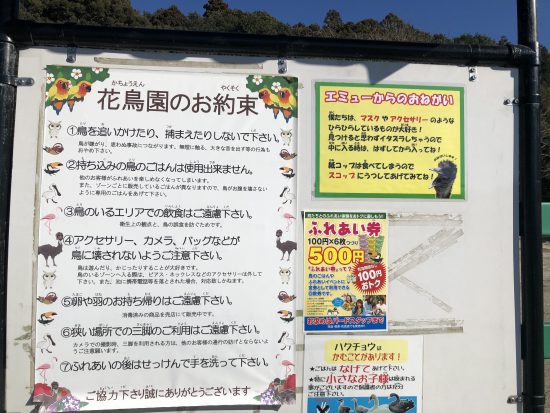 かちょうえん やくそく
花鳥園のお約束
①鳥を追いかけたり、捕まえたりしないで下さい。
鳥が嫌がり、思わぬ事故につながります。無理に触る、大きな音を出す等の行為も
おやめ下さい。
②持ち込みの鳥のごはんは使用出来ません。
他のお客様がふれあいを楽しめなくなってしまいます。
また、ゾーンごとに販売しているごはんが異なりますので、鳥がお腹を壊さない
ように専用のごはんをあげて下さい。
③鳥のいるエリアでの飲食はご遠慮下さい。
衛生上の観点と、鳥の誤食を防ぐためです。
④アクセサリー、カメラ、バッグなどが
鳥に壊されないようご注意下さい。
鳥は遊んだり、かじったりすることが大好きです。
鳥のいるゾーンへ入る際は、ピアス・ネックレスなどのアクセサリーは外して
下さい。また、池に携帯電話等を落とされた場合、対応致しかねます。
⑤卵や羽のお持ち帰りはご遠慮下さい。
消毒済みの商品を売店にて販売中です。
⑥狭い場所での三脚のご利用はご遠慮下さい。
カメラでの撮影時、三脚を利用される方は、他のお客様の通行の妨げとならない
ようご注意願います。
⑦ふれあいの後はせっけんで手を洗って下さい。
ご協力下さり誠にありがとうございます
エミューからのおねがい
僕たちは、マスクやアクセサリーのような
ひらひらしているものが大好き!
見つけると思わずイタズラしちゃうので
中に入る時は、はずしてから入ってね!
紙コップは食べてしまうので
スコップにうつしてあげてみてね!
鳥たちとのふれあい体験をおトクに楽しもう!
ふれあい券
100円×6枚つづり
500円
100円
おトク
「ふれあい券って?」
鳥のごはんや
ふれあいイベントに
金券として利用できる
回数券です。
おまめなバードスタッフまで
ハクチョウは
かむことがあります!
★ごはんは なげて あげて下さい。
★特に 小さなお子様 は噛まれる
事がございますので保護者の方は
ご注意下さい。